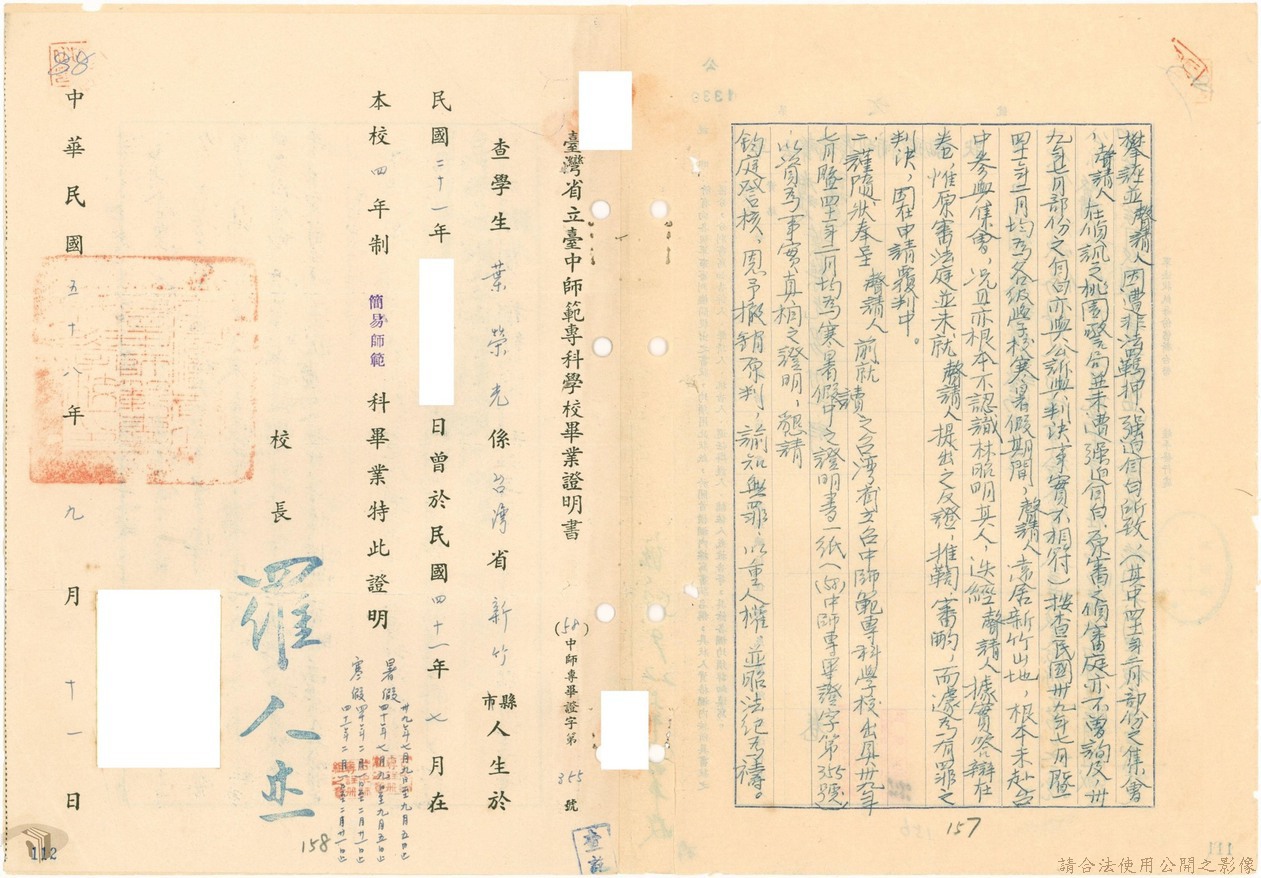 攀誣並聲請人因遭非法羈押、強迫自白所致、（其中四十一年二月部份之集會
，聲請人在偵訊之桃園警局並未遭強迫自白、原審之偵審庭亦不曾詢及、卅
九年七月部份之自白亦與公訴與判決事實不相符）按查民國卅九年七月暨
四十一年二月均為各級學校寒暑假期間，聲請人素居新竹山地，根本未赴台
中參與集會，况且亦根本不認識林昭明其人，迭經聲請人據實答辯在
卷，惟原審法庭並未就聲請人提出之反證，推鞫審酌，而遽為有罪之
判決，因在申請覆判中。
二、謹隨狀奉呈聲請人前就讀之台灣省立台中師範專科學校出具卅九年
七月暨四十一年二月均為寒暑假中之證明書一紙（(58)中師專畢證字第355號）
，以資為事實真相之證明，懇請
鈞庭詧核，恩予撤銷原判，諭知無罪，以重人權，並昭法紀為禱。
157
臺灣省立臺中師範專科學校畢業證明書
(58)中師專畢證字第355號
查學生葉榮光係台灣省新竹縣市人生於
民國二十一年 日曾於民國四十一年七月在
本校四年制簡易師範科畢業特此證明
暑假 卅九年七月九日至九月五日止
四十年七月九日至九月五日止
寒假 四十年二月一日至二月廿一日止
四十一年二月一日至二月廿一日止
校長 羅人杰
中華民國五十八年九月十一日
158
112
請合法使用公開之影像